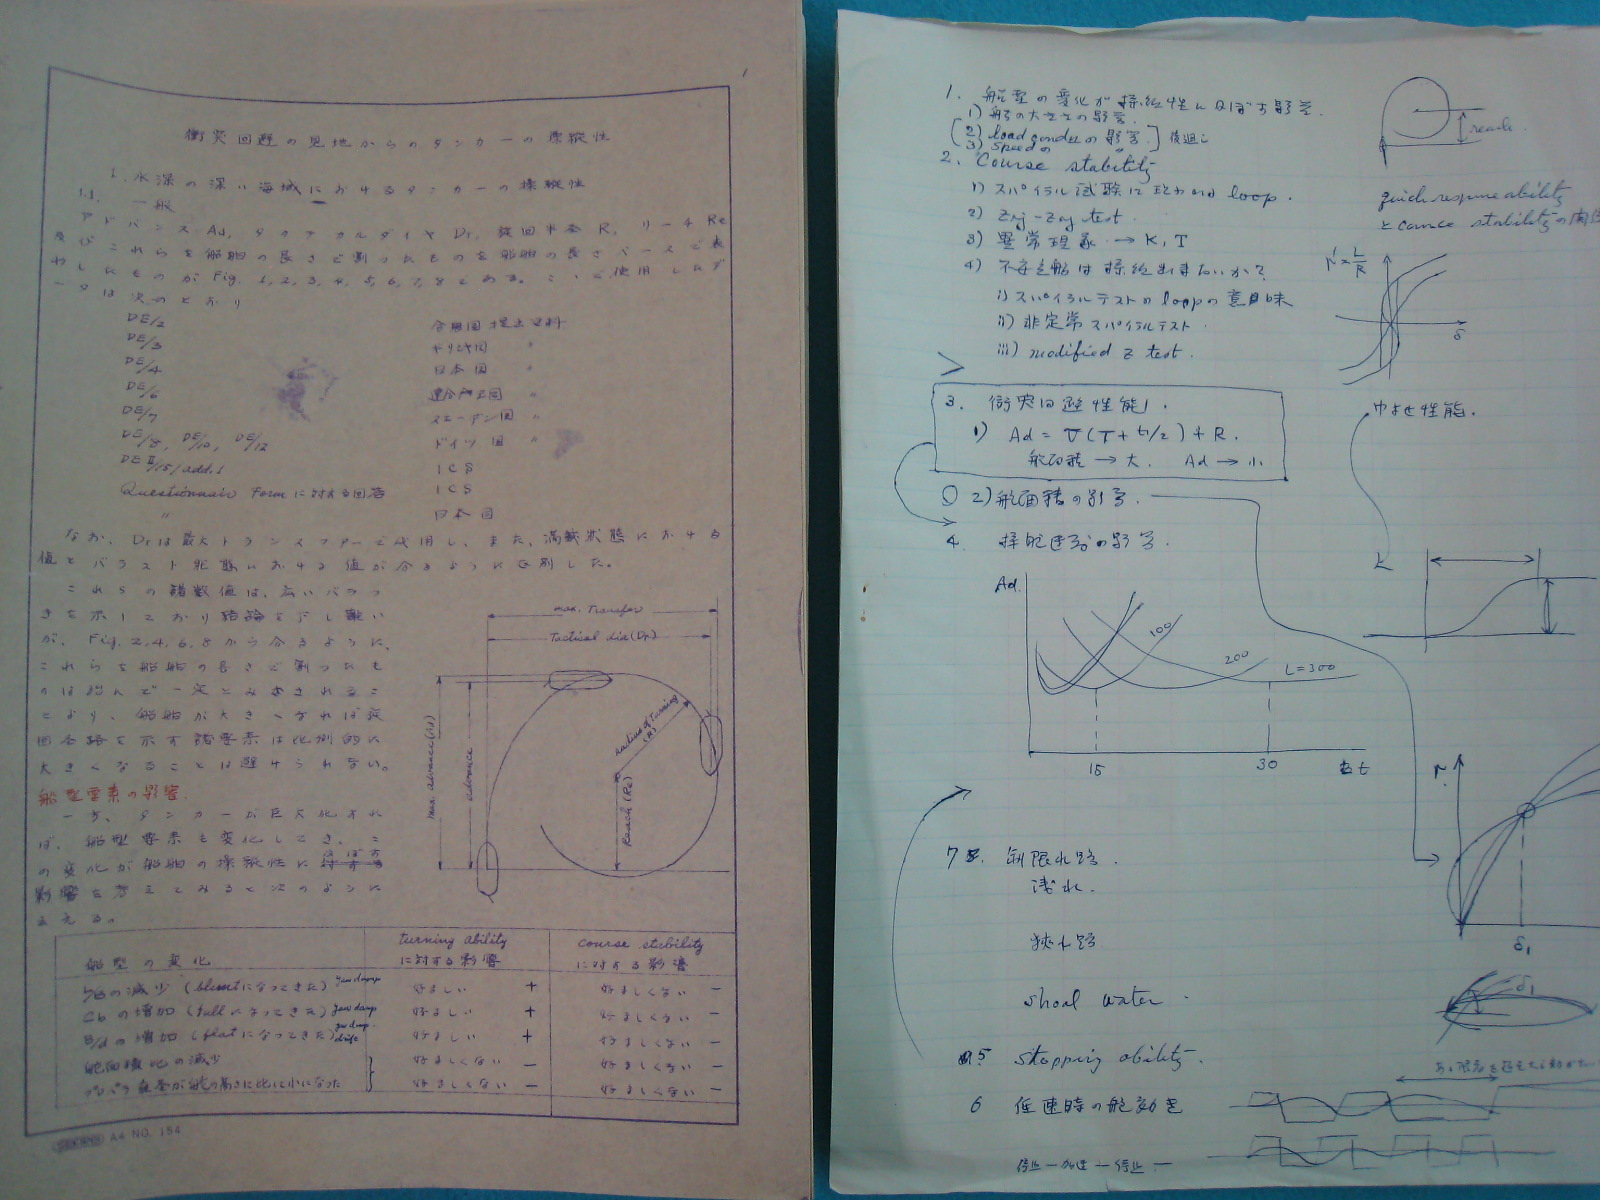 1
衝突回避の見地からのタンカーの操縦性
1. 水深の深い海域におけるタンカーの操縦性
1.1. 一般
アドバンス Ad, タクチカルダイヤ Dr, 旋回半径 R, リーチ Re
及びこれらを船舶の長さで割ったものを船舶の長さベースで表
わしたものが Fig. 1,2,3,4,5,6,7,8である。ここで使用したデ
ータは次のとおり
DE/2 合衆国提出資料
DE/3 ギリシャ国 〃
DE/4 日本国 〃
DE/6 連合王国 〃
DE/7 スエーデン国 〃
DE/8, DE/10, DE/12 ドイツ国 〃
DE II/15/add.1 ICS
Questionnair Formに対する回答 ICS
〃 日本国
なお、Drは最大トランスファーで代用し、また、満載状態における
値とバラスト状態における値が分るように区別した。
これらの諸数値は、広いバラつ
きを示しており結論を下し難い
が、Fig. 2,4,6,8から分るように、
これらを船舶の長さで割ったも
のは殆んど一定とみなされるこ
とより、船舶が大きくなれば旋
回圣路を示す諸要素は比例的に
大きくなることは避けられない。
船型要素の影響
一方、タンカーが巨大化すれ
ば、船型要素も変化してき、こ
の変化が船舶の操縦性に及ぼす
影響を考えてみると次のように
云える。
max. Transfer
Tactical dia (Dr)
max. advance (Ad)
advance
Radius of Turning (R)
Reach (Re)
船型の変化 turning ability に対する影響 course stability に対する影響
L/Bの減少 (bluntになってきた) yaw damp 好ましい + 好ましくない −
Cbの増加 (fullになってきた) yaw damp 好ましい + 好ましくない −
B/dの増加 (flatになってきた) yaw damp. drift 好ましい + 好ましくない −
舵面積比の減少 好ましくない − 好ましくない −
プロペラ直径が舵の高さに比し小になった 好ましくない − 好ましくない −
A4 NO. 154
1. 船型の変化が操縦性に及ぼす影響.
1) 船の大きさの影響.
2) load condnの影響
3) speedの 〃
後廻し
2. Course stability
1) スパイラル試験に現われる loop.
2) Zig-Zag test.
3) 異常現象 → K, T
4) 不安定船は操縦出来ないか?
i) スパイラルテストの loopの意味
ii) 非定常スパイラルテスト.
iii) modified Z test.
3. 衝突回避性能.
1) Ad = V(T+t1/2) + R.
舵面積 → 大. Ad → 小
2) 舵面積の影響.
4. 操舵速了の影響.
Ad.
100
200
L=300
15
30
t
7. 制限水路.
浅水.
狭水路
shoal water.
5 stopping ability.
6 低速時の舵効き
停止 − 加速 − 停止 −
reach.
quick response ability
と course stabilityの関係
r' = L/R
δ
巾よせ性能.
r
δ1
δ1